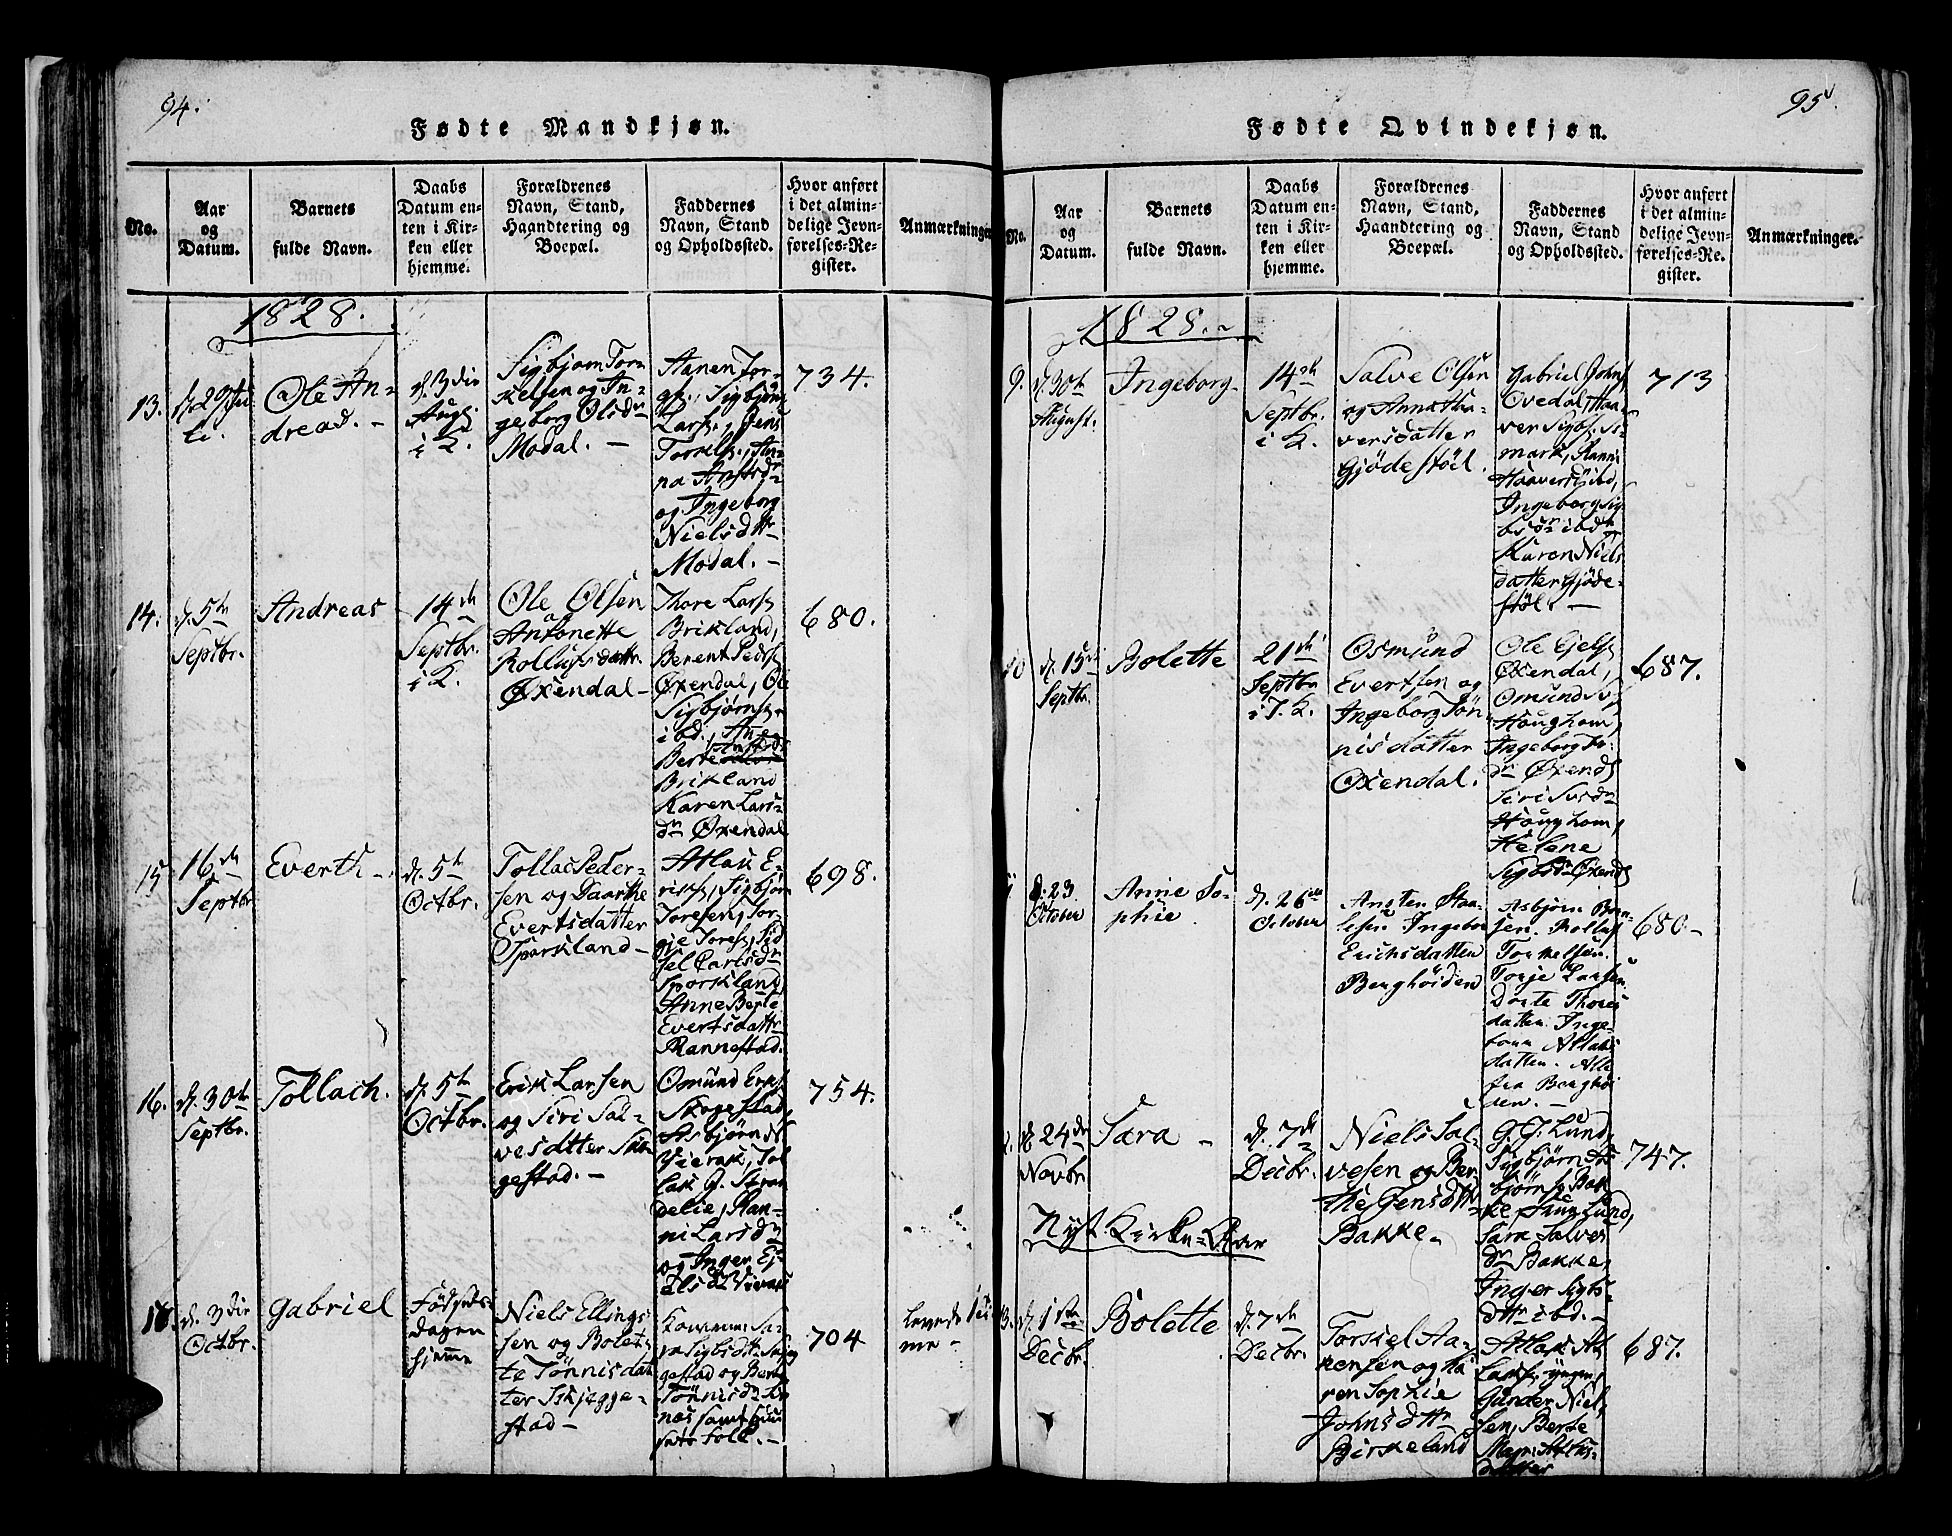 94.
Fødte Mandkjøn.
No.
Aar
og
Datum.
Barnets
fulde Navn.
Daabs
Datum en-
ten i Kir-
ken eller
hjemme.
Forældrenes
Navn, Stand,
Haandtering og
Boepæl.
Faddernes
Navn, Stand
og Opholdssted.
Hvor anført
i det almin-
delige Jevn-
førelses-Re-
gister.
Anmærkninger
1828.
13.
Ole An-
dreas. -
d. 3die
Aug.
i K.
Sigbjørn Tor-
kelsen og In-
geborg Olsdr
Modal. -
Aanen Tor-
Sigbjørn
Lars.,
og Ingeborg
Nielsdttr
Modal. -
734.
14.
d. 5te
Septbr.
Andreas
14de
Septbr.
i K.
Ole Olsen
og
Antonette
Rollufsdattr
Øxendal -
Thore Lars.
Brikland,
Berent Peders.
Øxendal, Ole
Sigbjørns.
ibd., Ane
Berte
Brikland
Karen Lars-
dr Øxendal
680.
15
16de
Septbr
Everth -
d. 5te
Octbr.
Tollac Peder-
sen og Daarthe
Evertsdatter
Sporkland -
Atlak E-
riks., Sigbjørn
Toresen, Tor-
gie Tores., Sid-
sel Carlsdr
Sporkland,
Anne Berte
Evertsdattr
Rannestad.
698.
16.
d. 30te
Septbr.
Tollach.
d. 5te
Octbr.
Erik Larsen
og Siri Sal-
vesdtter Sko-
gestad. -
Omund Eriks.
Skogestad,
Asbjørn
Vierak, Tol-
lak G. Stran-
delie, Ran-
ni Larsdr
og Inger Ej-
elsdr Vierak
754.
d. 3die
Octbr.
Gabriel
Fødsels-
dagen
hjemme
Niels Ellings-
sen og Bolet-
te Tønnisdat-
ter Skjegge-
stad -
gestad og Berte
Tønnisdr
704
levede 1 ti-
me -
95.
Fødte Qvindekjøn.
No.
Aar
og
Datum.
Barnets
fulde Navn.
Daabs
Datum en-
ten i Kir-
ken eller
hjemme.
Forældrenes
Navn, Stand,
Haandtering og
Boepæl.
Faddernes
Navn, Stand
og Opholdssted.
Hvor anført
i det almin-
delige Jevn-
førelses-Re-
gister.
Anmærkninger.
1828.
9.
d. 30te
August.
Ingeborg
14de
Septbr.
i K.
Salve Olsen
og Anna Haa-
versdatter
Gjødestøl.
Gabriel Johns.
Ovedal, Haa-
ver Sigbs.
mark, Ranni
Haaversd ibd,
Ingeborg Sig-
bsdr ibd,
Karen Niels
datter Gjøde-
støl. -
713
d. 15de
Septbr.
Bolette
21de
Septbr
i K.
Osmund
Evertsen og
Ingeborg Tøn-
nisdatter
Øxendal.
Ole Ejels.
Øxendal,
Omund
Houghom,
Ingeborg
dr Øxend.
Siri
Houghom,
Helene
Sigbsdr Øxend
687.
d. 23
October
Anne So-
phie
d. 26de
October
Ansten Staa-
lesen Ingebor
Erichsdatter
Berghøiden
Asbjørn
sen. Rolluf
Torkelsen.
Tonje Larsen.
Dorte Thores
datter. Inge-
borr Atlaks
datter. Alle
fra Berghøi
den. -
680 -
d. 24de
Novbr
Sara -
d. 7de
Decbr.
Niels Sal-
vesen og Ber-
the Jensdttr
Bakke -
G. G. Lund,
Sigbjørn As-
bjørns. Bak-
ke, Lund,
Sara Salves
dr Bakke,
Inger Sigbs-
dttr ibd. -
747.
Nyt Kirke-Aar
d. 1ste
Decbr.
Bolette
d. 7de
Decbr.
Torkiel Aa-
nensen og Ka-
ren Sophie
Johnsdttr
Birkeland
Atlak
Lars. yngre,
Gunder Niel-
sen, Berte
datter
687.